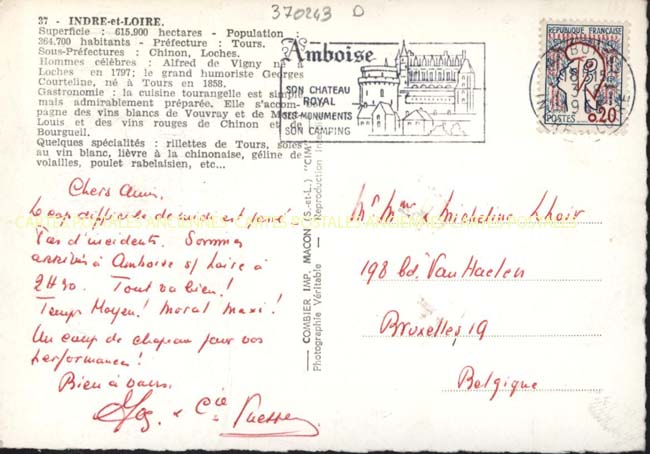 370243 D
37 - INDRE-et-LOIRE.
Superficie : 615.900 hectares - Population :
364.700 habitants - Préfecture : Tours.
Sous-Préfectures : Chinon, Loches.
Hommes célèbres : Alfred de Vigny né à
Loches en 1797; le grand humoriste Georges
Courteline, né à Tours en 1858.
Gastronomie : la cuisine tourangelle est simple
mais admirablement préparée. Elle s'accom-
pagne des vins blancs de Vouvray et de
Louis et des vins rouges de Chinon et de
Bourgueil.
Quelques spécialités : rillettes de Tours, soles
au vin blanc, lièvre à la chinonaise, géline de
volailles, poulet rabelaisien, etc...
Amboise
SON CHATEAU
ROYAL
SES MONUMENTS
SON CAMPING
REPUBLIQUE FRANÇAISE
POSTES 0,20
Chers Amis.
Le cap difficile de midi est passé
Pas d'incidents. Sommes
arrivés à Amboise s/ Loire à
2H30. Tout va bien!
Temps Moyen! Moral Maxi!
Un coup de chapeau pour vos
performances!
Bien à vous.
& Cie
COMBIER IMP. MACON (S.-et-L.) "CIM"
Photographie Véritable - Reproduction
Mr Mme & Micheline
198 bd. Van Haelen
Bruxelles 19
Belgique
CARTES POSTALES ANCIENNES CARTES POSTALES ANCIENNES CARTES POSTALES